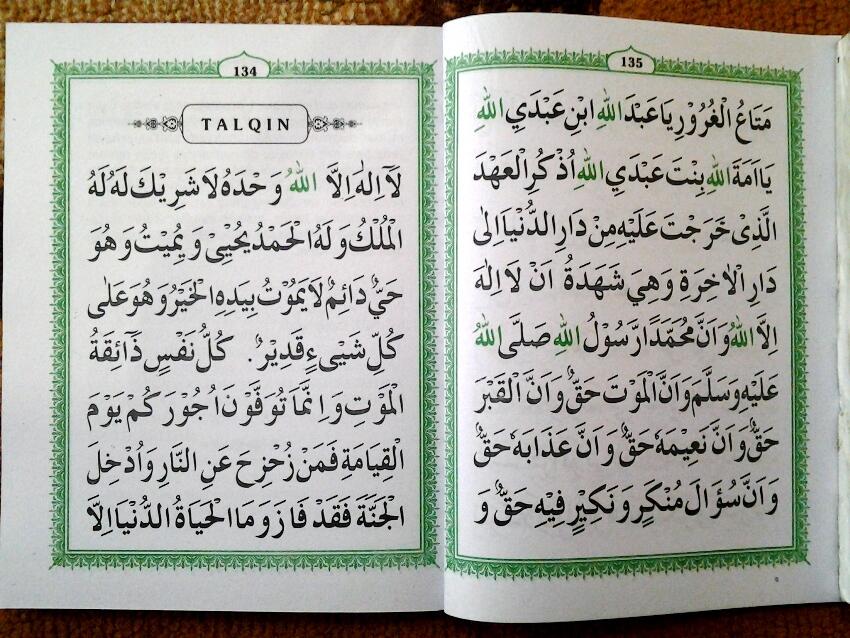 134
TALQIN
لَآ اِلٰهَ اِلَّا اللهُ وَحْدَهُ لَا شَرِيْكَ لَهُ لَهُ
الْمُلْكُ وَلَهُ الْحَمْدُ يُحْيِىْ وَيُمِيْتُ وَهُوَ
حَيٌّ دَائِمٌ لَا يَمُوْتُ بِيَدِهِ الْخَيْرُ وَهُوَ عَلٰى
كُلِّ شَيْىءٍ قَدِيْرٌ. كُلُّ نَفْسٍ ذَآئِقَةُ
الْمَوْتِ وَاِنَّمَا تُوَفَّوْنَ اُجُوْرَكُمْ يَوْمَ
الْقِيَامَةِ فَمَنْ زُحْزِحَ عَنِ النَّارِ وَاُدْخِلَ
الْجَنَّةَ فَقَدْ فَازَ وَمَا الْحَيَاةُ الدُّنْيَا اِلَّا
135
مَتَاعُ الْغُرُوْرِ يَا عَبْدَ اللهِ ابْنِ عَبْدَيِ اللهِ
يَا اَمَةَ اللهِ بِنْتَ عَبْدَيِ اللهِ اُذْكُرِ الْعَهْدَ
الَّذِىْ خَرَجْتَ عَلَيْهِ مِنْ دَارِ الدُّنْيَا اِلٰى
دَارِ الْاٰخِرَةِ وَهِيَ شَهَدَةُ اَنْ لَا اِلٰهَ
اِلَّا اللهُ وَاَنَّ مُحَمَّدًا رَّسُوْلُ اللهِ صَلَّى اللهُ
عَلَيْهِ وَسَلَّمَ وَاَنَّ الْمَوْتَ حَقٌّ وَاَنَّ الْقَبْرَ
حَقٌّ وَاَنَّ نَعِيْمَهٗ حَقٌّ وَاَنَّ عَذَابَهٗ حَقٌّ
وَاَنَّ سُؤَالَ مُنْكَرٍ وَنَكِيْرٍ فِيْهِ حَقٌّ وَ